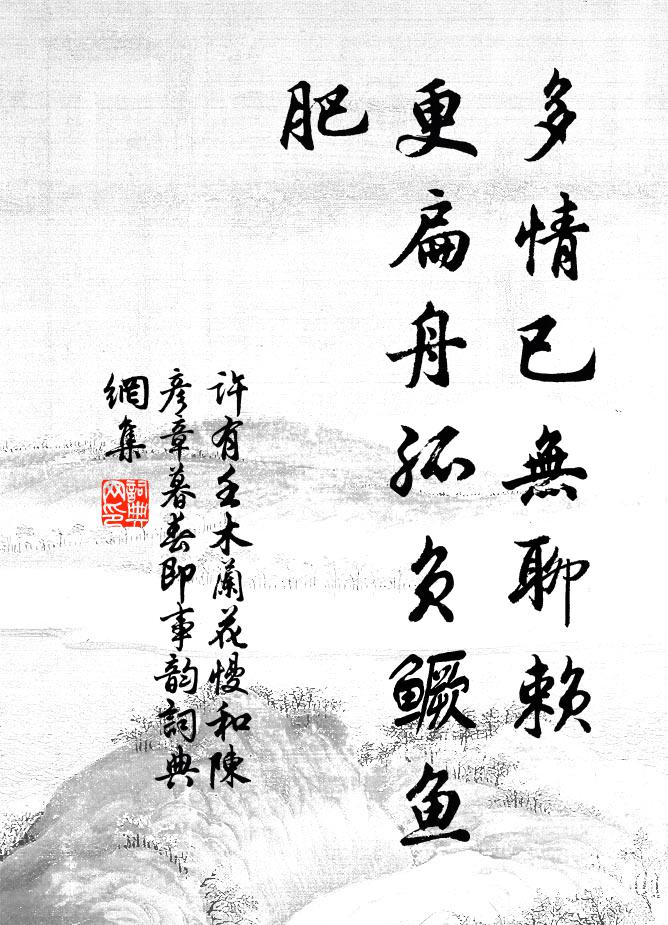 多情已無聊賴
更扁舟孤负鳜鱼
肥
许有壬木蘭花慢和陳
彦章暮春即事韵詞典
網集
詞典
网印